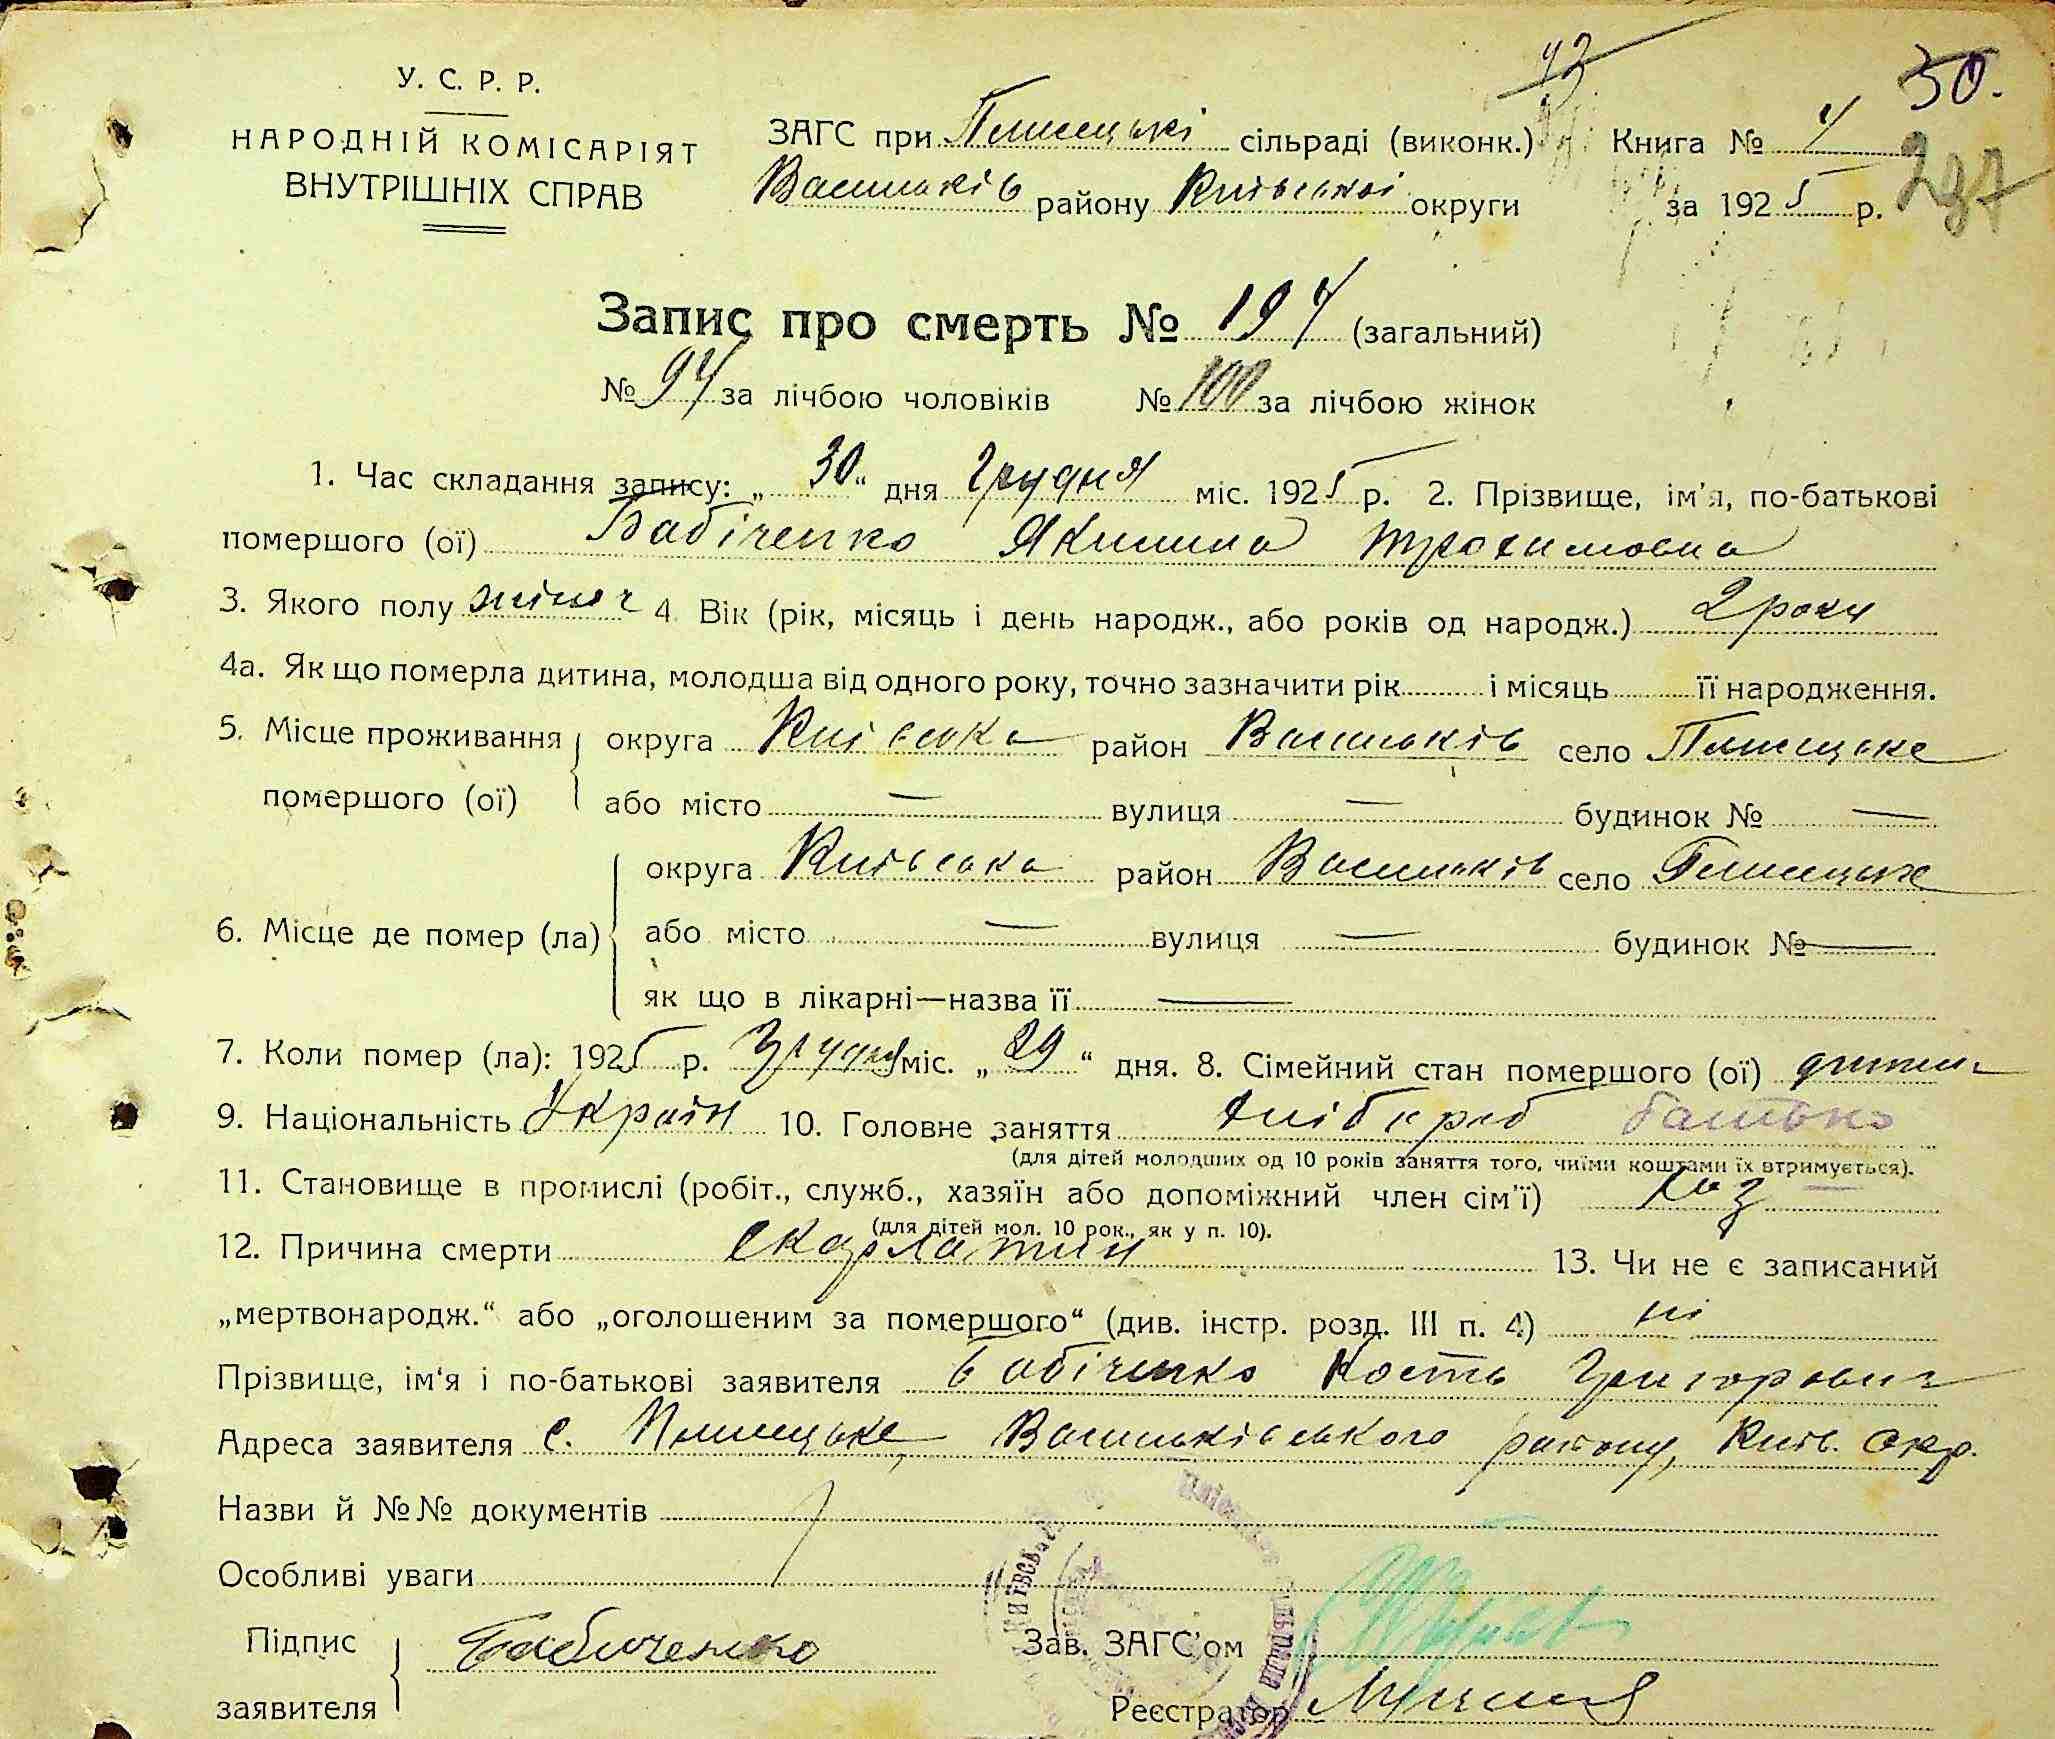 У. С. Р. Р.
НАРОДНІЙ КОМІСАРІЯТ
ВНУТРІШНІХ СПРАВ
ЗАГС при Плисецькі сільраді (виконк.)
Васильків району Київської округи
Книга № 4
за 1925 р.
50.
Запис про смерть № 194 (загальний)
№ 94 за лічбою чоловіків № 100 за лічбою жінок
1. Час складання запису: „ 30 “ дня Грудня міс. 1925 р. 2. Прізвище, ім'я, по-батькові
помершого (ої) Бабіченко Якилина Трохимовна
3. Якого полу жіноч 4. Вік (рік, місяць і день народж., або років од народж.) 2 роки
4а. Як що померла дитина, молодша від одного року, точно зазначити рік і місяць її народження.
5. Місце проживання округа Київська район Васильків село Плисецьке
помершого (ої) або місто — вулиця — будинок № —
округа Київська район Васильків село Плисецьке
6. Місце де помер (ла) або місто — вулиця — будинок № —
як що в лікарні—назва її —
7. Коли помер (ла): 1925 р. Грудня міс. „ 29 “ дня. 8. Сімейний стан помершого (ої) дитина
9. Національність Україн 10. Головне заняття хлібороб батько
(для дітей молодших од 10 років заняття того, чиїми коштами їх втримується).
11. Становище в промислі (робіт., служб., хазяїн або допоміжний член сім'ї) хаз
(для дітей мол. 10 рок., як у п. 10).
12. Причина смерти скарлатин 13. Чи не є записаний
„мертвонародж.“ або „оголошеним за помершого“ (див. інстр. розд. III п. 4) ні
Прізвище, ім'я і по-батькові заявителя Бабіченко Кость Григорович
Адреса заявителя с. Плисецьке, Васильківського району, Київ. окр.
Назви й №№ документів
Особливі уваги
Підпис
заявителя
Бабиченко
Зав. ЗАГС'ом
Реєстратор